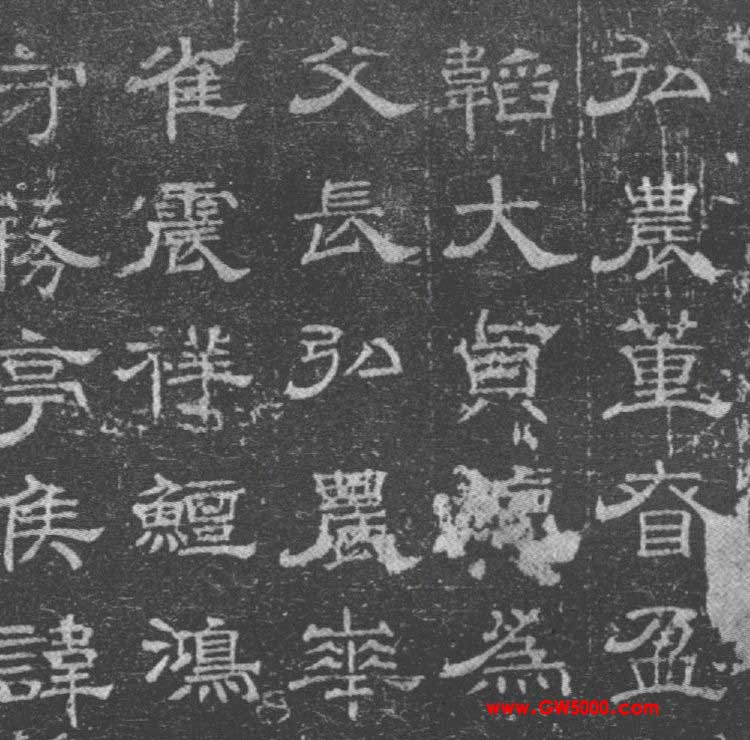 弘農董眘盈
韜大貞為
父長弘農華
雀震祥鱣鴻
守蓩亭侯諱
www.GW5000.com